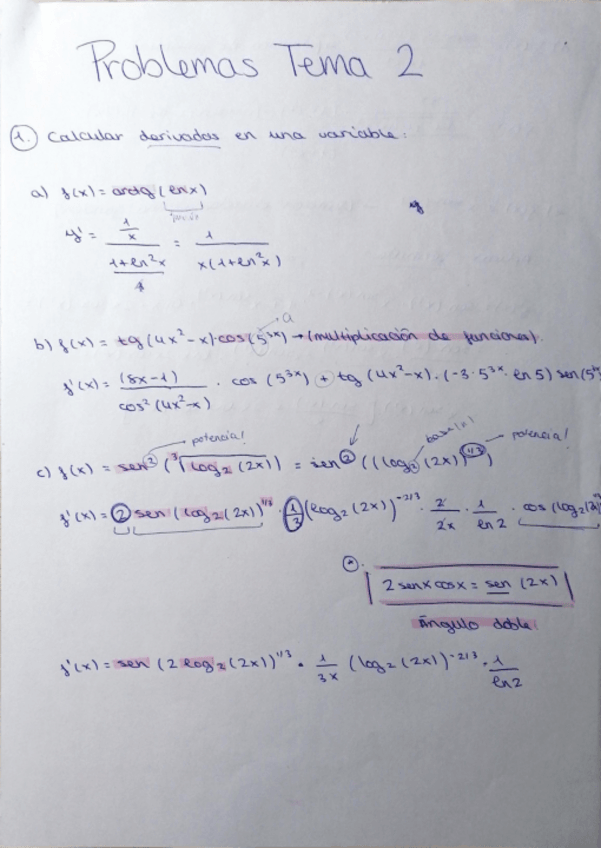 Problemas Tema 2
1. Calcular derivadas en una variable:
a) f(x) = arctg (ln x)
y' = (1/x) / (1+ln²x) = 1 / (x(1+ln²x))
b) f(x) = tg(4x²-x)·cos(5^(3x)) → (multiplicación de funciones).
a
f'(x) = (8x-1) / cos²(4x²-x) · cos(5^(3x)) + tg(4x²-x)·(-3·5^(3x)·ln 5) sen(5^(3x)
potencia! base potencia!
c) f(x) = sen²(∛(log₂(2x))) = sen²((log₂(2x))^(1/3))
f'(x) = 2 sen(log₂(2x))^(1/3) · 1/3 (log₂(2x))^(-2/3) · 2/2x · 1/ln 2 · cos(log₂(2x)
2 sen x cos x = sen (2x)
Ángulo doble
f'(x) = sen (2 log₂(2x))^(1/3) · 1/3x (log₂(2x))^(-2/3) · 1/ln 2